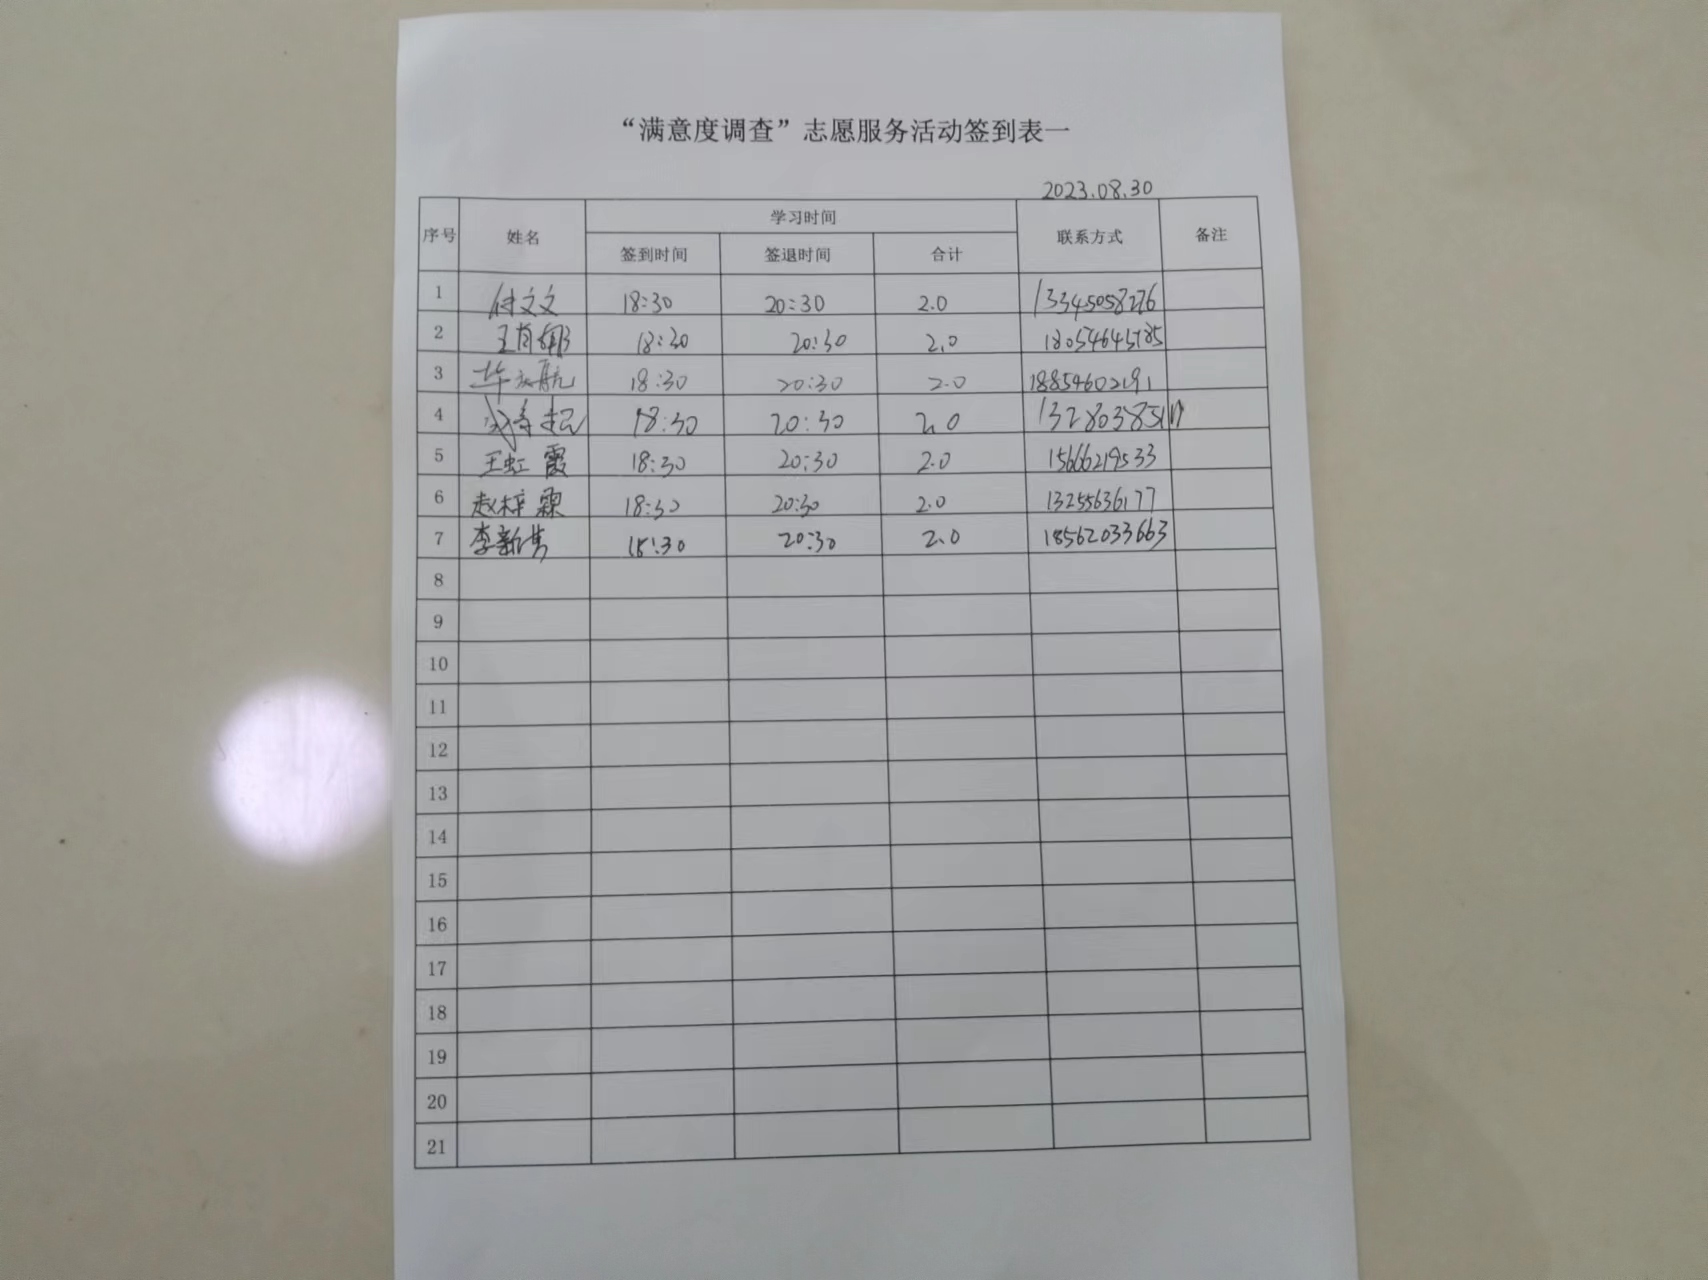 “满意度调查”志愿服务活动签到表一
2023.08.30
序号 姓名 学习时间 联系方式 备注
签到时间 签退时间 合计
1 付文文 18:30 20:30 2.0 13345058276
2 王肖娜 18:30 20:30 2.0 18054645785
3 18:30 20:30 2.0 18854602191
4 18:30 20:30 2.0
5 王虹霞 18:30 20:30 2.0 15666219533
6 赵梓霖 18:30 20:30 2.0 13255636177
7 李新隽 18:30 20:30 2.0 18562033663
8
9
10
11
12
13
14
15
16
17
18
19
20
21